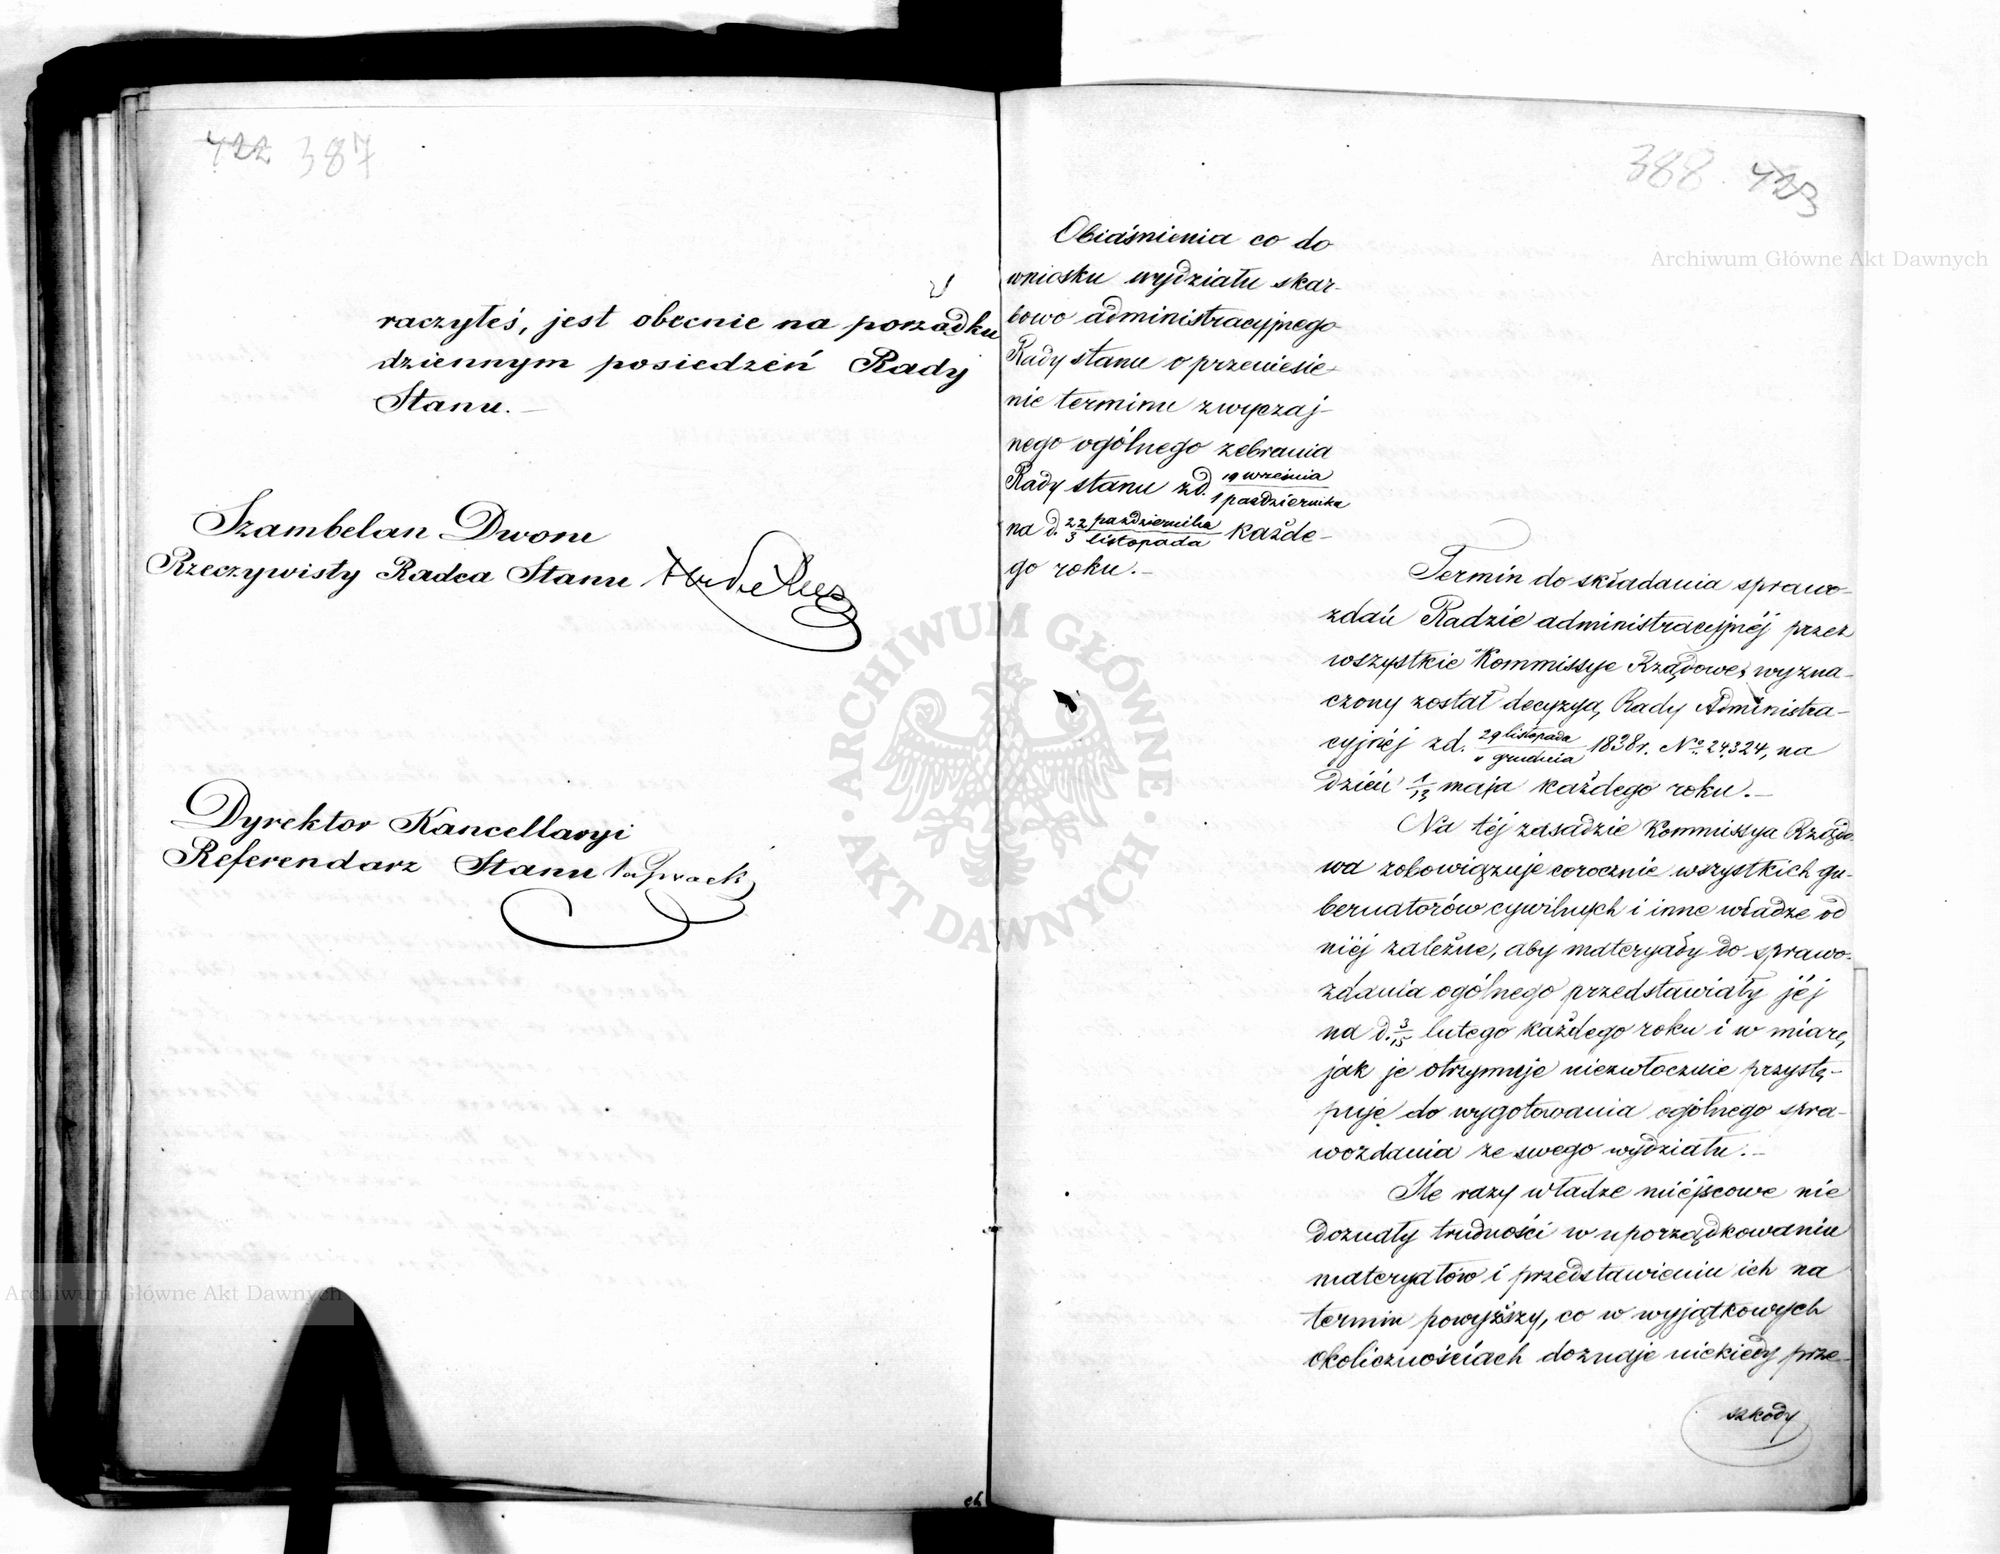 422 387
raczyłeś, jest obecnie na porządku
dziennym posiedzeń Rady
Stanu. —
Szambelan Dworu
Rzeczywisty Radca Stanu
Dyrektor Kancellaryi
Referendarz Stanu
388. 423
Archiwum Główne Akt Dawnych
Obiaśnienia co do
wniosku wydziału skar-
bowo administracyjnego
Rady stanu o przeniesie-
nie terminu zwyczaj-
nego ogólnego zebrania
Rady stanu z d. 19 września / 1 października
na d. 22 października / 3 listopada każde-
go roku. —
Termin do składania sprawo-
zdań Radzie administracyjnéj przez
wszystkie Kommissye Rządowe, wyzna-
czony został decyzyą Rady Administra-
cyjnéj z d. 29 listopada / 11 grudnia 1838 r. No. 24324, na
dzień 1/13 maja każdego roku. —
Na téj zasadzie Kommissya Rządo-
wa zobowiązuje corocznie wszystkich gu-
bernatorów cywilnych i inne władze od
niéj zależne, aby materyały do sprawo-
zdania ogólnego przedstawiały jéj
na d. 3/15 lutego każdego roku i w miarę,
jak je otrzymuje niezwłocznie przystę-
puje do wygotowania ogólnego spra-
wozdania ze swego wydziału. —
Ile razy władze miéjscowe nie
doznały trudności w uporządkowaniu
materyałów i przedstawieniu ich na
termin powyższy, co w wyjątkowych
okolicznościach doznaje niekiedy prze-
szkody
ARCHIWUM GŁÓWNE · AKT DAWNYCH ·
Archiwum Główne Akt Dawnych